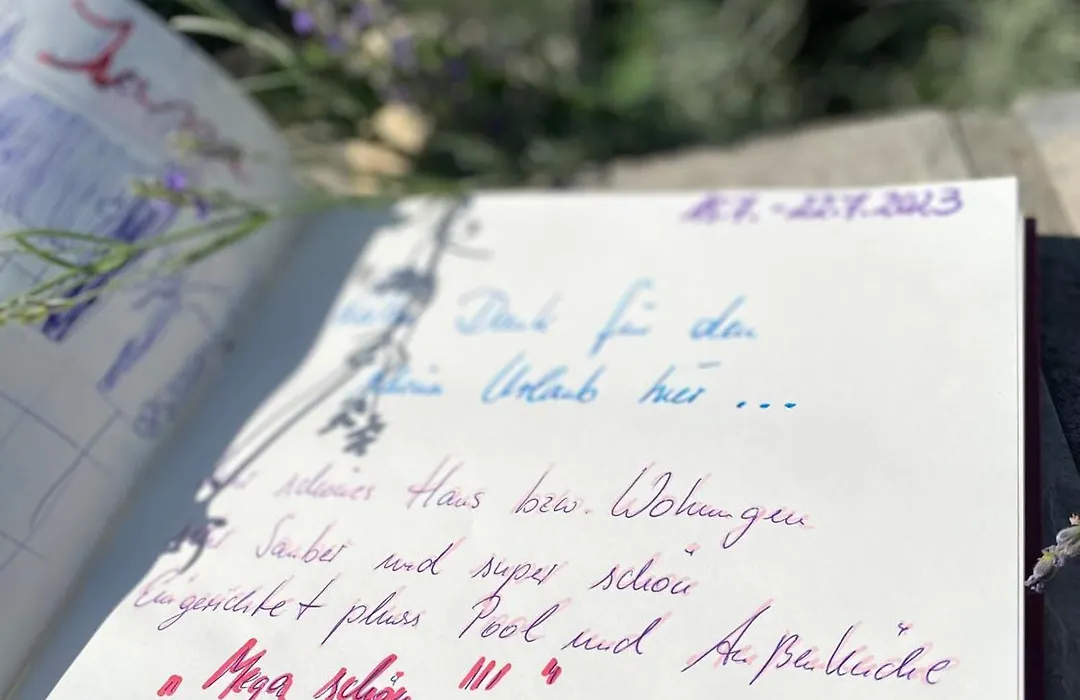 22.7.2023
Dank für den
Urlaub hier ...
schönes Haus bzw. Wohnungen
Sauber und super schön
Eingerichtet pluss Pool und Außenküche
" Mega schön !!! "